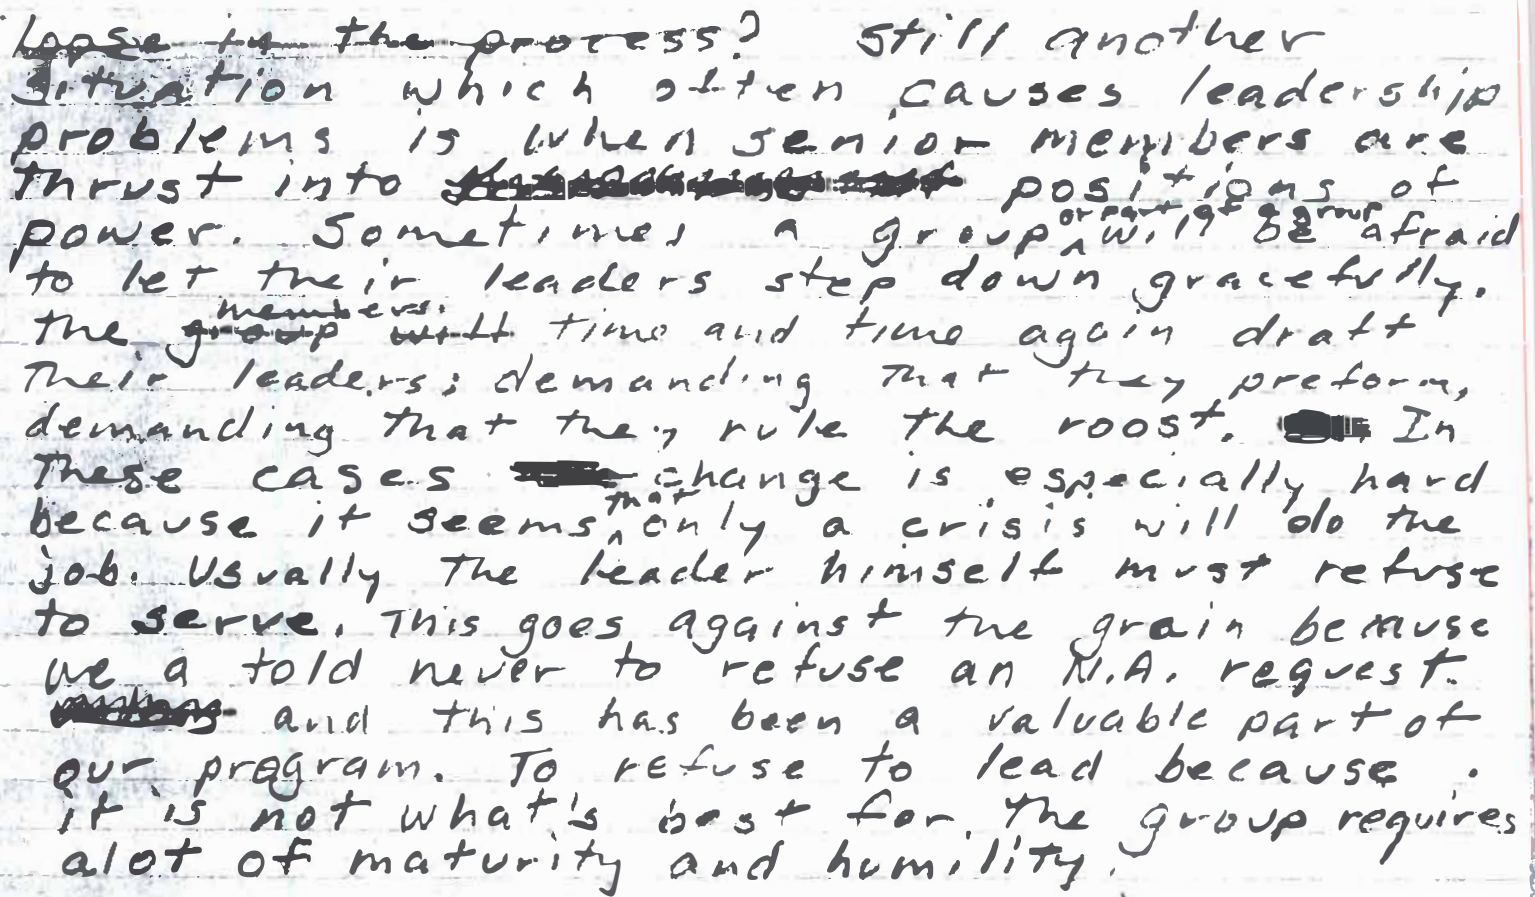 lapse in the process? Still another
situation which often causes leadership
problems is when senior members are
Thrust into positions of
power. Sometimes a group or part of a group will be afraid
to let their leaders step down gracefully.
The members time and time again draft
Their leaders; demanding That they preform,
demanding That they rule The roost. In
These cases change is especially hard
because it seems that only a crisis will do the
job. Usually The leader himself must refuse
to serve. This goes against the grain because
we a told never to refuse an N.A. request.
and this has been a valuable part of
our program. To refuse to lead because
it is not what's best for The group requires
alot of maturity and humility.